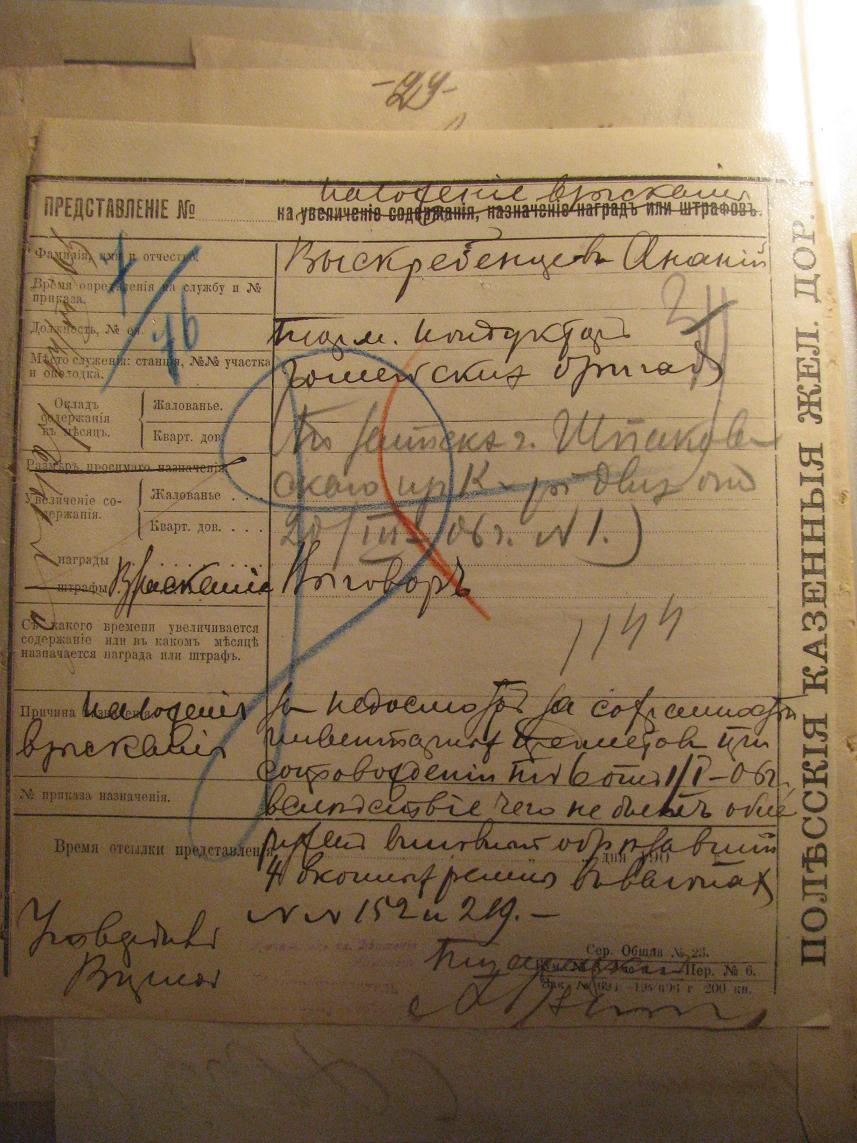 -29-
наложеніе взысканія
ПРЕДСТАВЛЕНІЕ № на увеличеніе содержанія, назначеніе наградъ или штрафовъ.
Фамилія, имя и отчество. Выскребенцевъ Ананій
Время опредѣленія на службу и №
приказа.
Должность, № ея. Торм. Кондукторъ
Мѣсто служенія: станція, №№ участка
и околодка. Гомельскихъ бригадъ
Окладъ
содержанія
въ мѣсяцъ.
Жалованье.
Кварт. дов.
По запискѣ г. Шпаков
скаго
Размѣръ просимаго назначенія
Увеличеніе со-
держанія.
Жалованье . . .
Кварт. дов. . . .
20/III-06 г. № 1.)
награды
штрафы Взысканіе Выговоръ
1144
Съ какого времени увеличивается
содержаніе или въ какомъ мѣсяцѣ
назначается награда или штрафъ.
Причина назначенія. наложенія
взысканія
за недосмотръ за сохранностью
инвентарныхъ предметовъ при
сопровожденіи п. № 6 отъ 1/I-06 г.
вслѣдствіе чего не былъ обна
№ приказа назначенія.
Время отсылки представленія дня 190
руженъ виновный обрѣзавшій
4 оконныхъ ремня въ вагонахъ
№№ 152 и 219. —
Сер. Общая № 23.
Пер. № 6.
200 кн.
ПОЛѢССКІЯ КАЗЕННЫЯ ЖЕЛ. ДОР.